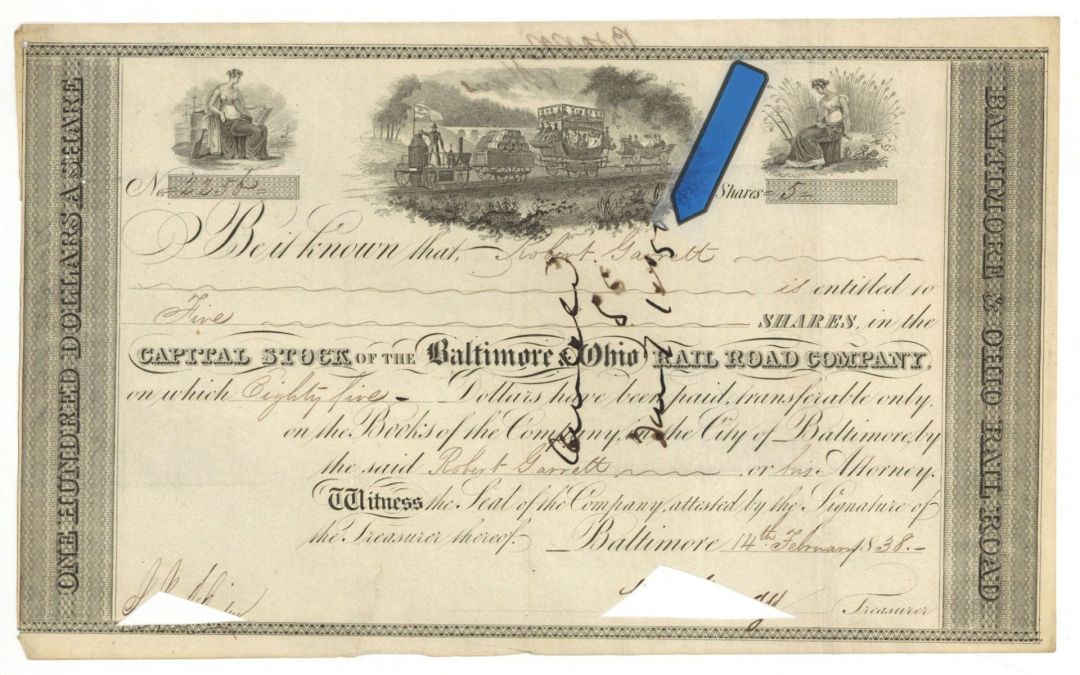 ONE HUNDRED DOLLARS A SHARE
No. 2256
Shares 5
Be it known that, Robert Garrett
is entitled to
Five SHARES, in the
CAPITAL STOCK OF THE Baltimore & Ohio RAIL ROAD COMPANY,
on which Eighty five Dollars have been paid, transferable only,
on the Books of the Company, in the City of Baltimore, by
the said Robert Garrett or his Attorney.
Witness the Seal of the Company, attested by the Signature of
the Treasurer thereof. Baltimore 14th February 1838.
Treasurer
BALTIMORE & OHIO RAIL ROAD